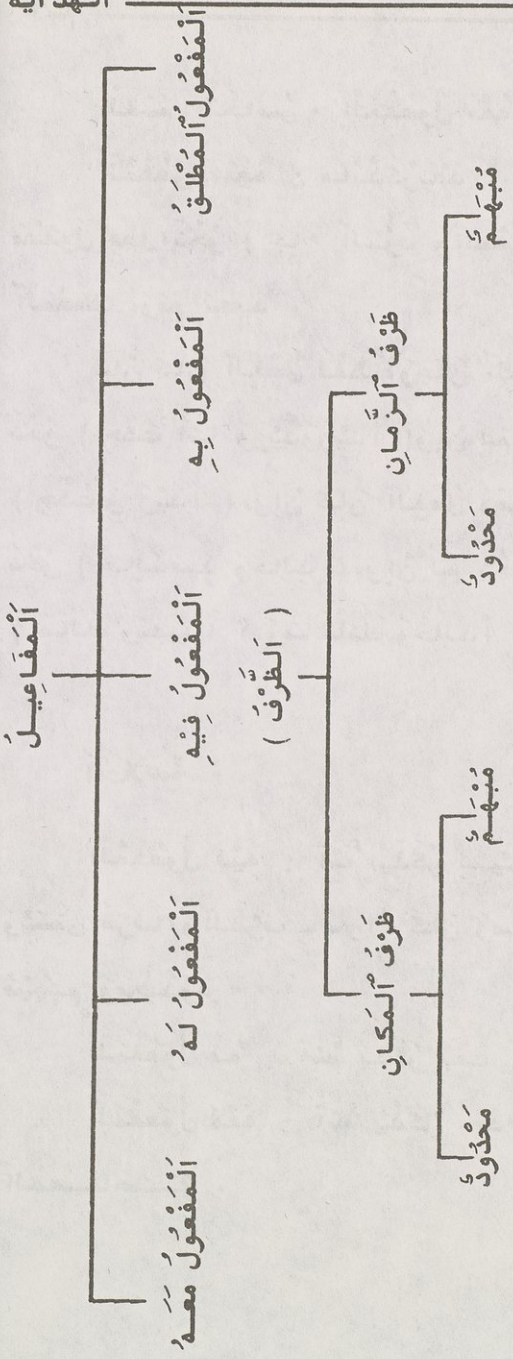 اَلْمَفَاعِيلُ
اَلْمَفْعُولُ الْمُطْلَقُ
اَلْمَفْعُولُ بِهِ
اَلْمَفْعُولُ فِيْهِ
اَلْمَفْعُولُ لَهُ
اَلْمَفْعُولُ مَعَهُ
( اَلظَّرْفُ )
ظَرْفُ الزَّمَانِ
ظَرْفُ الْمَكَانِ
مُبْهَمٌ
مَحْدُودٌ
مُبْهَمٌ
مَحْدُودٌ